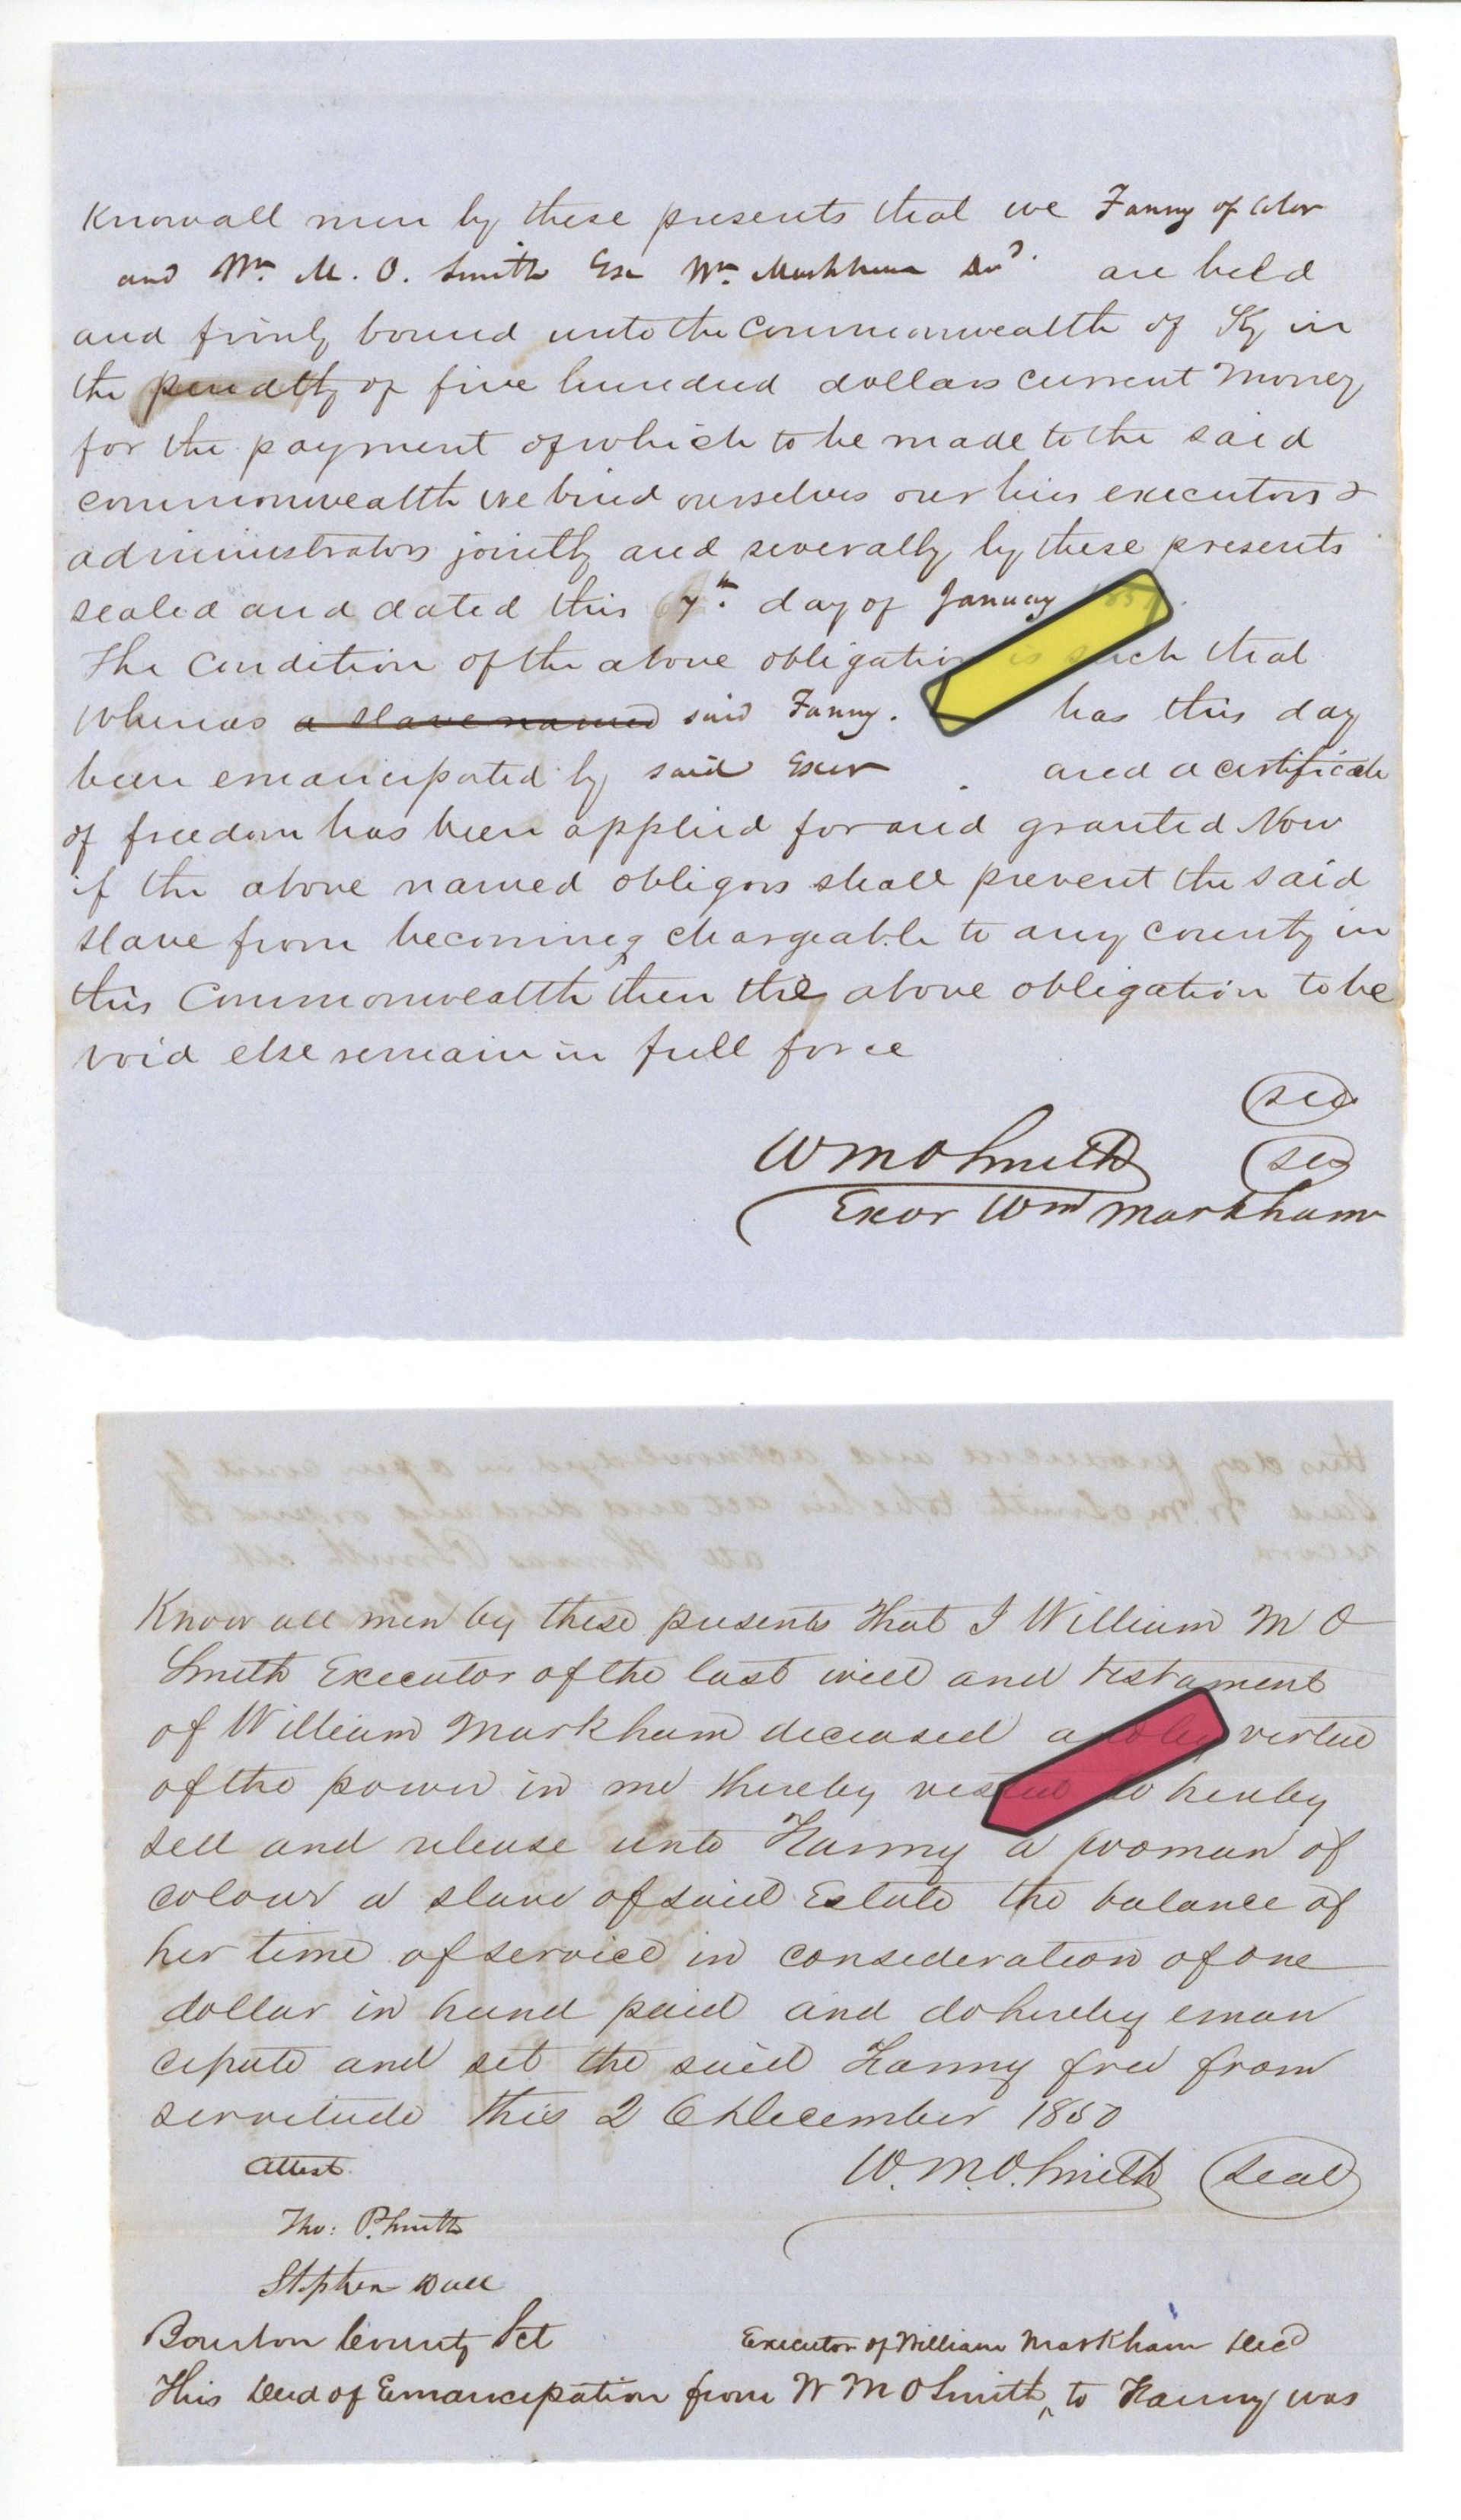 Know all men by these presents that we Fanny of Color
and Wm. M. O. Smith Exr Wm. Markham Decd. are held
and firmly bound unto the Commonwealth of Ky in
the penalty of five hundred dollars current money
for the payment of which to be made to the said
commonwealth we bind ourselves our heirs executors &
administrators jointly and severally by these presents
sealed and dated this 7th. day of January 1851.
The Condition of the above obligation is such that
whereas a slave named said Fanny. has this day
been emancipated by said Exer and a certificate
of freedom has been applied for and granted Now
if the above named obligors shall prevent the said
slave from becoming chargeable to any county in
this Commonwealth then the above obligation to be
void else remain in full force
W M O Smith
Exor Wm Markham
this day produced and acknowledged in open court by
said W. M. O Smith to be his act and deed and ordered to
record
att Thomas P Smith clk
Know all men by these presents that I William M O
Smith Executor of the last will and testament
of William Markham deceased and by virtue
of the power in me thereby vested do hereby
sell and release unto Fanny a woman of
colour a slave of said Estate the balance of
her time of service in consideration of one
dollar in hand paid and do hereby eman
cipate and set the said Fanny free from
servitude this 26 December 1850
Attest. W. M. O. Smith Seal
Tho: P. Smith
Stephen
Bourbon County Sct Executor of William Markham Decd
This Deed of Emancipation from W M O Smith ^ to Fanny was